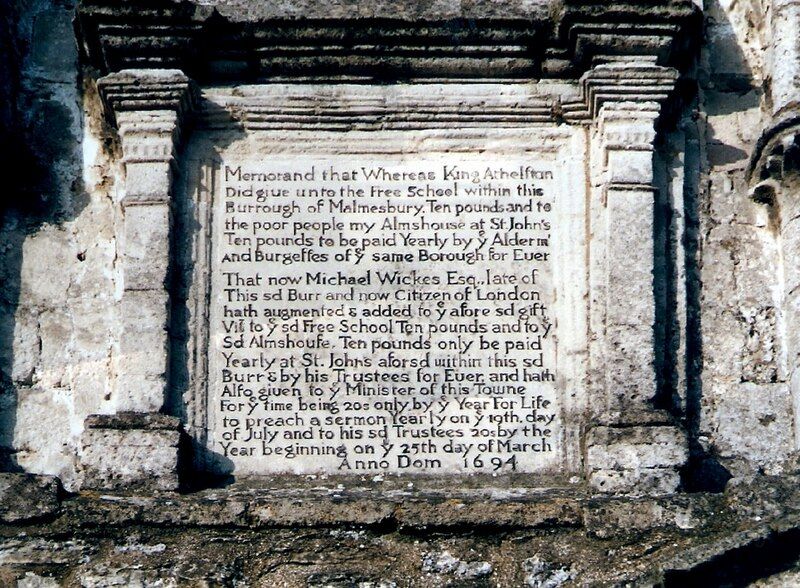 Memorand that Whereas King Athelſtan
Did giue unto the Free School within this
Burrough of Malmesbury. Ten pounds and to
the poor people my Almshouse at St. John's
Ten pounds to be paid Yearly by yͤ Alderm'
And Burgeſſes of yͤ same Borough for Euer
That now Michael Wickes Esq., late of
This sd Burr and now Citizen of London
hath augmented & added to yͤ afore sd gift
Viſ to yͤ sd Free School Ten pounds and to yͤ
Sd Almshouſe. Ten pounds only be paid
Yearly at St. John's aforsd within this sd
Burr & by his Trustees for Euer. and hath
Alſo given to yͤ Minister of this Towne
For yͤ time being 20s only. by yͤ Year For Life
to preach a sermon Yearly on yͤ 19th. day
of July and to his sd Trustees 20s by the
Year beginning on yͤ 25th day of March
Anno Dom 1694